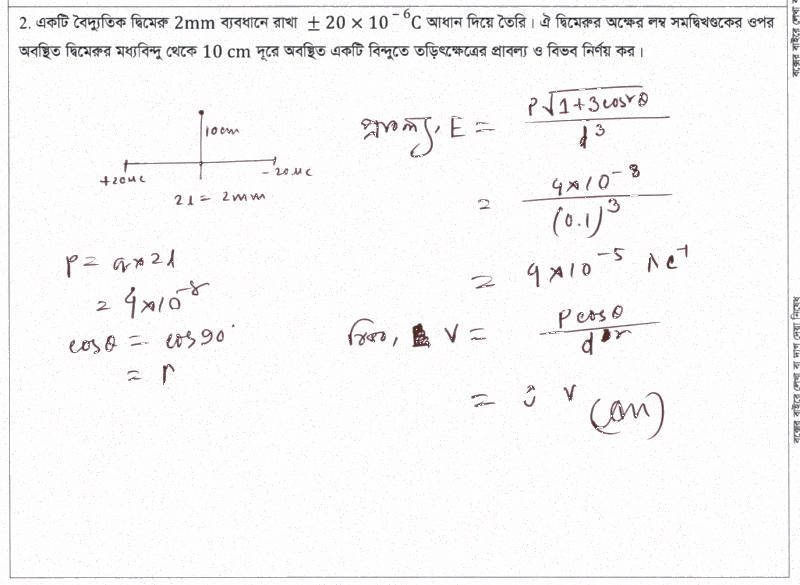 2. একটি বৈদ্যুতিক দ্বিমেরু 2mm ব্যবধানে রাখা ± 20 × 10⁻⁶C আধান দিয়ে তৈরি। ঐ দ্বিমেরুর অক্ষের লম্ব সমদ্বিখণ্ডকের ওপর
অবস্থিত দ্বিমেরুর মধ্যবিন্দু থেকে 10 cm দূরে অবস্থিত একটি বিন্দুতে তড়িৎক্ষেত্রের প্রাবল্য ও বিভব নির্ণয় কর।
10cm
+20μc
-20μc
2l = 2mm
P = q×2l
= 4×10⁻⁸
cosθ = cos90°
=
প্রাবল্য, E = P√1+3cos²θ / d³
= 4×10⁻⁸ / (0.1)³
= 4×10⁻⁵ NC⁻¹
বিভব, V = Pcosθ / d²
= 0 V (Ans)
বক্সের বাইরে লেখা বা দাগ দেয়া নিষেধ